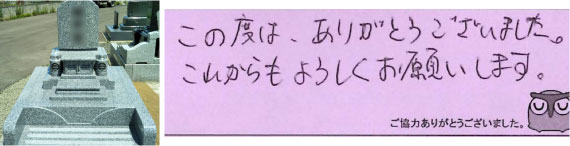 この度は、ありがとうございました。
これからもよろしくお願いします。
ご協力ありがとうございました。